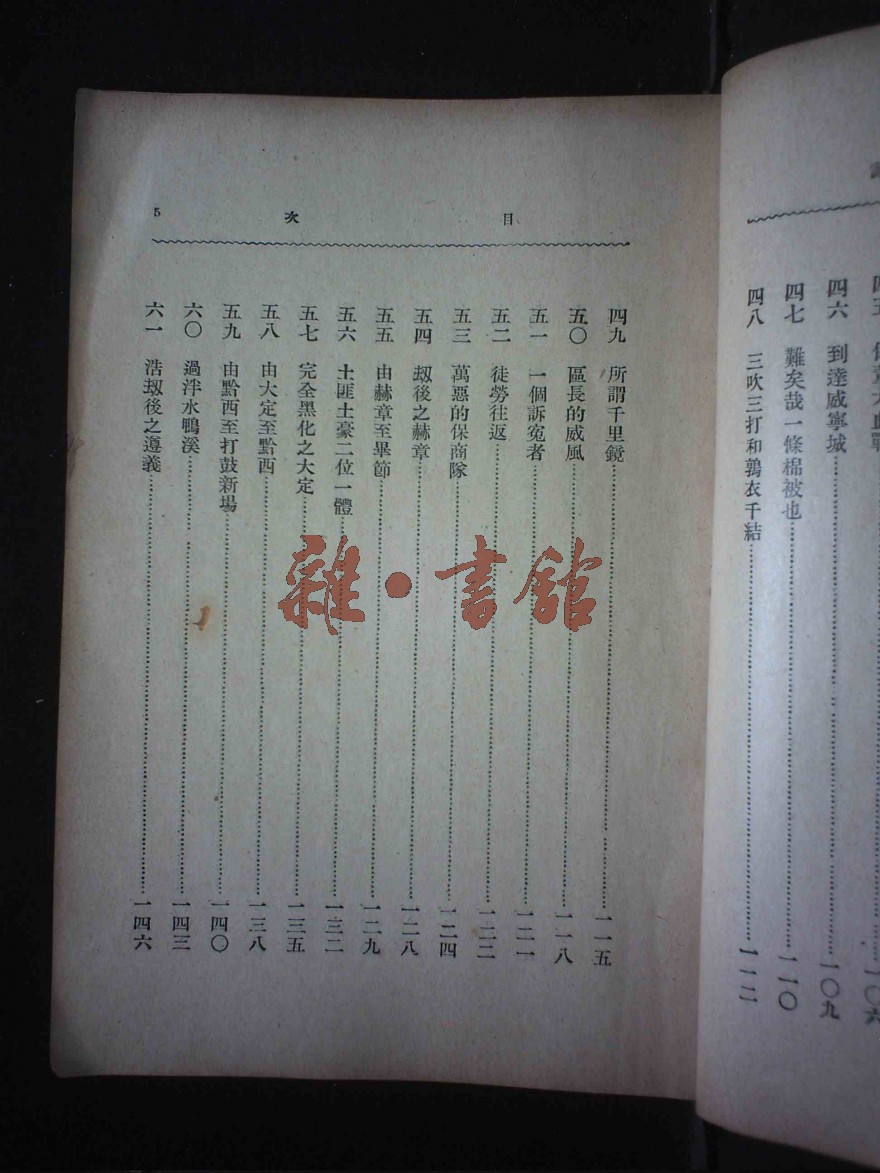 四六 到達威寧城 一〇九
四七 難矣哉一條棉被也 一一〇
四八 三吹三打和鶉衣千結 一一二
目 次 5
四九 所謂千里鏡 一一五
五〇 區長的威風 一一八
五一 一個訴寃者 一二一
五二 徒勞往返 一二二
五三 萬惡的保商隊 一二四
五四 刼後之赫章 一二八
五五 由赫章至畢節 一二九
五六 土匪土豪二位一體 一三二
五七 完全黑化之大定 一三五
五八 由大定至黔西 一三八
五九 由黔西至打鼓新場 一四〇
六〇 過泮水鴨溪 一四三
六一 浩刼後之遵義 一四六
雜·書館